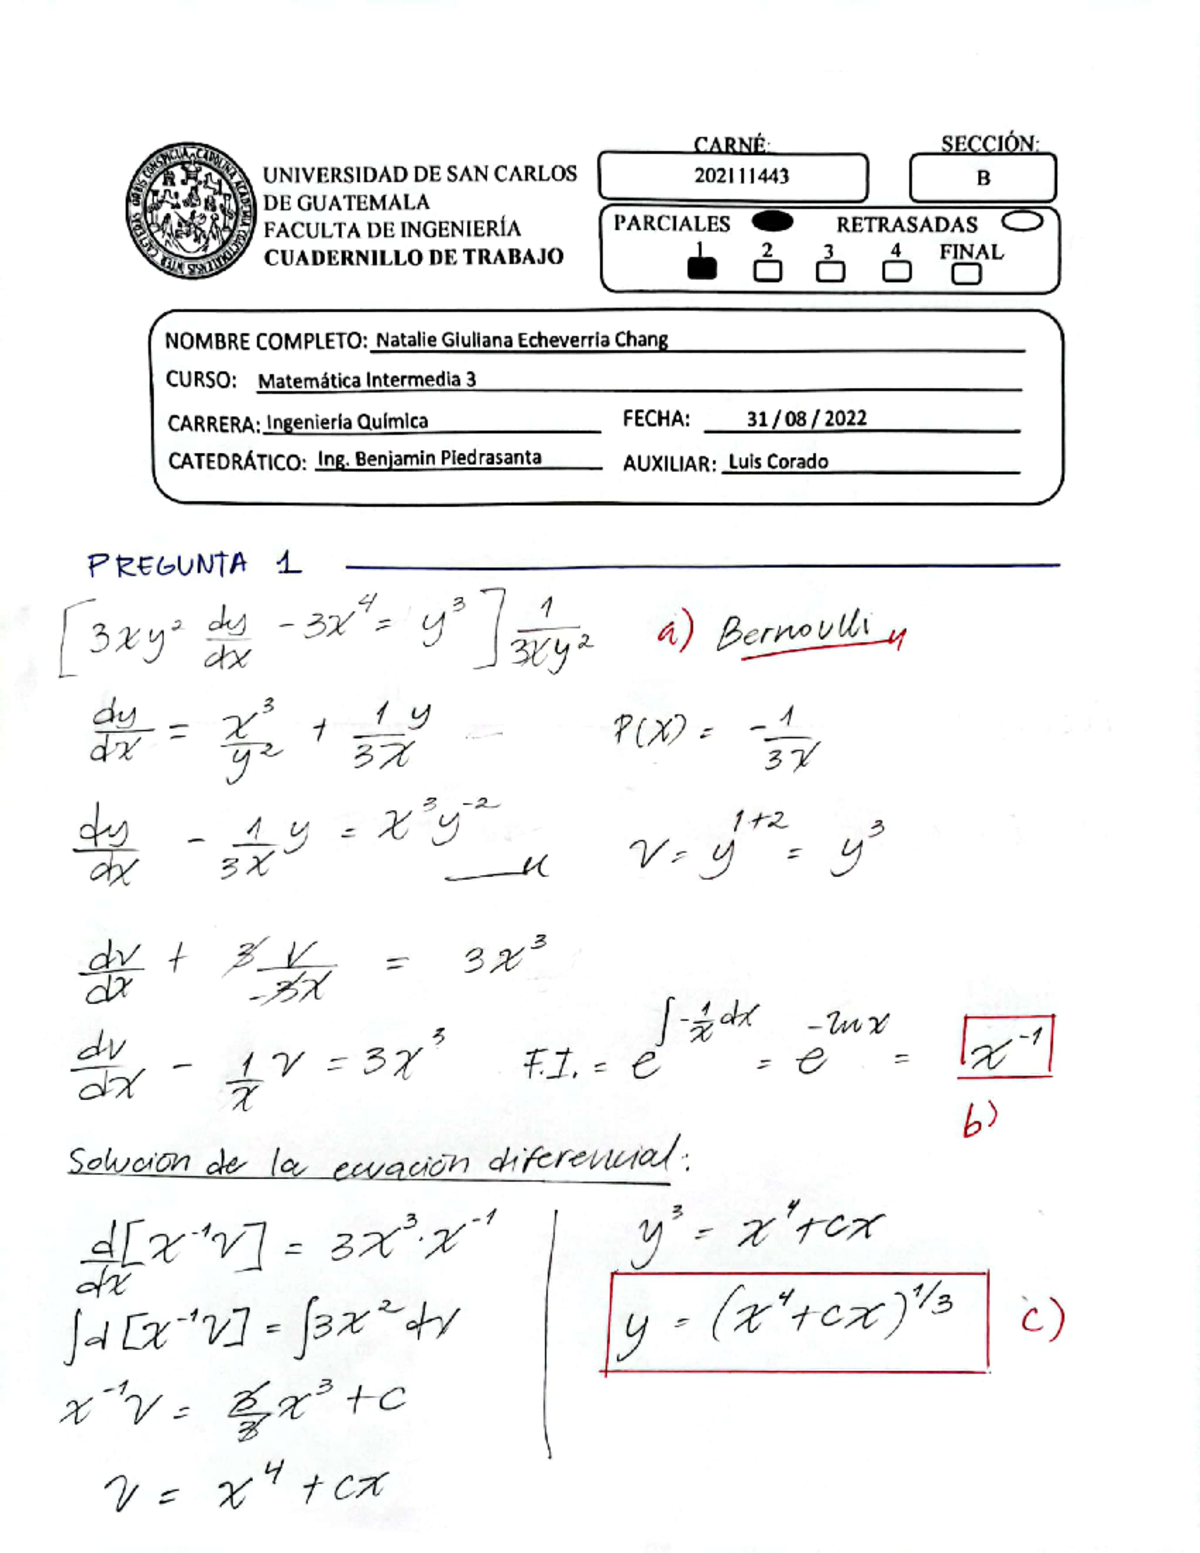 CARNÉ:
SECCIÓN:
UNIVERSIDAD DE SAN CARLOS
DE GUATEMALA
FACULTA DE INGENIERÍA
CUADERNILLO DE TRABAJO
202111443
B
PARCIALES RETRASADAS
1 2 3 4 FINAL
NOMBRE COMPLETO: Natalie Giuliana Echeverria Chang
CURSO: Matemática Intermedia 3
CARRERA: Ingeniería Química FECHA: 31 / 08 / 2022
CATEDRÁTICO: Ing. Benjamin Piedrasanta AUXILIAR: Luis Corado
PREGUNTA 1
[3xy² dy/dx - 3x⁴ = y³] 1/3xy² a) Bernoulli
dy/dx = x³/y² + 1/3x y P(x) = -1/3x
dy/dx - 1/3x y = x³y⁻² v = y¹⁺² = y³
dv/dx + 3 v/-3x = 3x³
dv/dx - 1/x v = 3x³ F.I. = e^∫-1/x dx = e^-lnx = x⁻¹
b)
Solucion de la ecuación diferencial:
d/dx [x⁻¹v] = 3x³·x⁻¹
∫d[x⁻¹v] = ∫3x² dv
x⁻¹v = 3/3 x³ + c
v = x⁴ + cx
y³ = x⁴ + cx
y = (x⁴ + cx)^1/3 c)